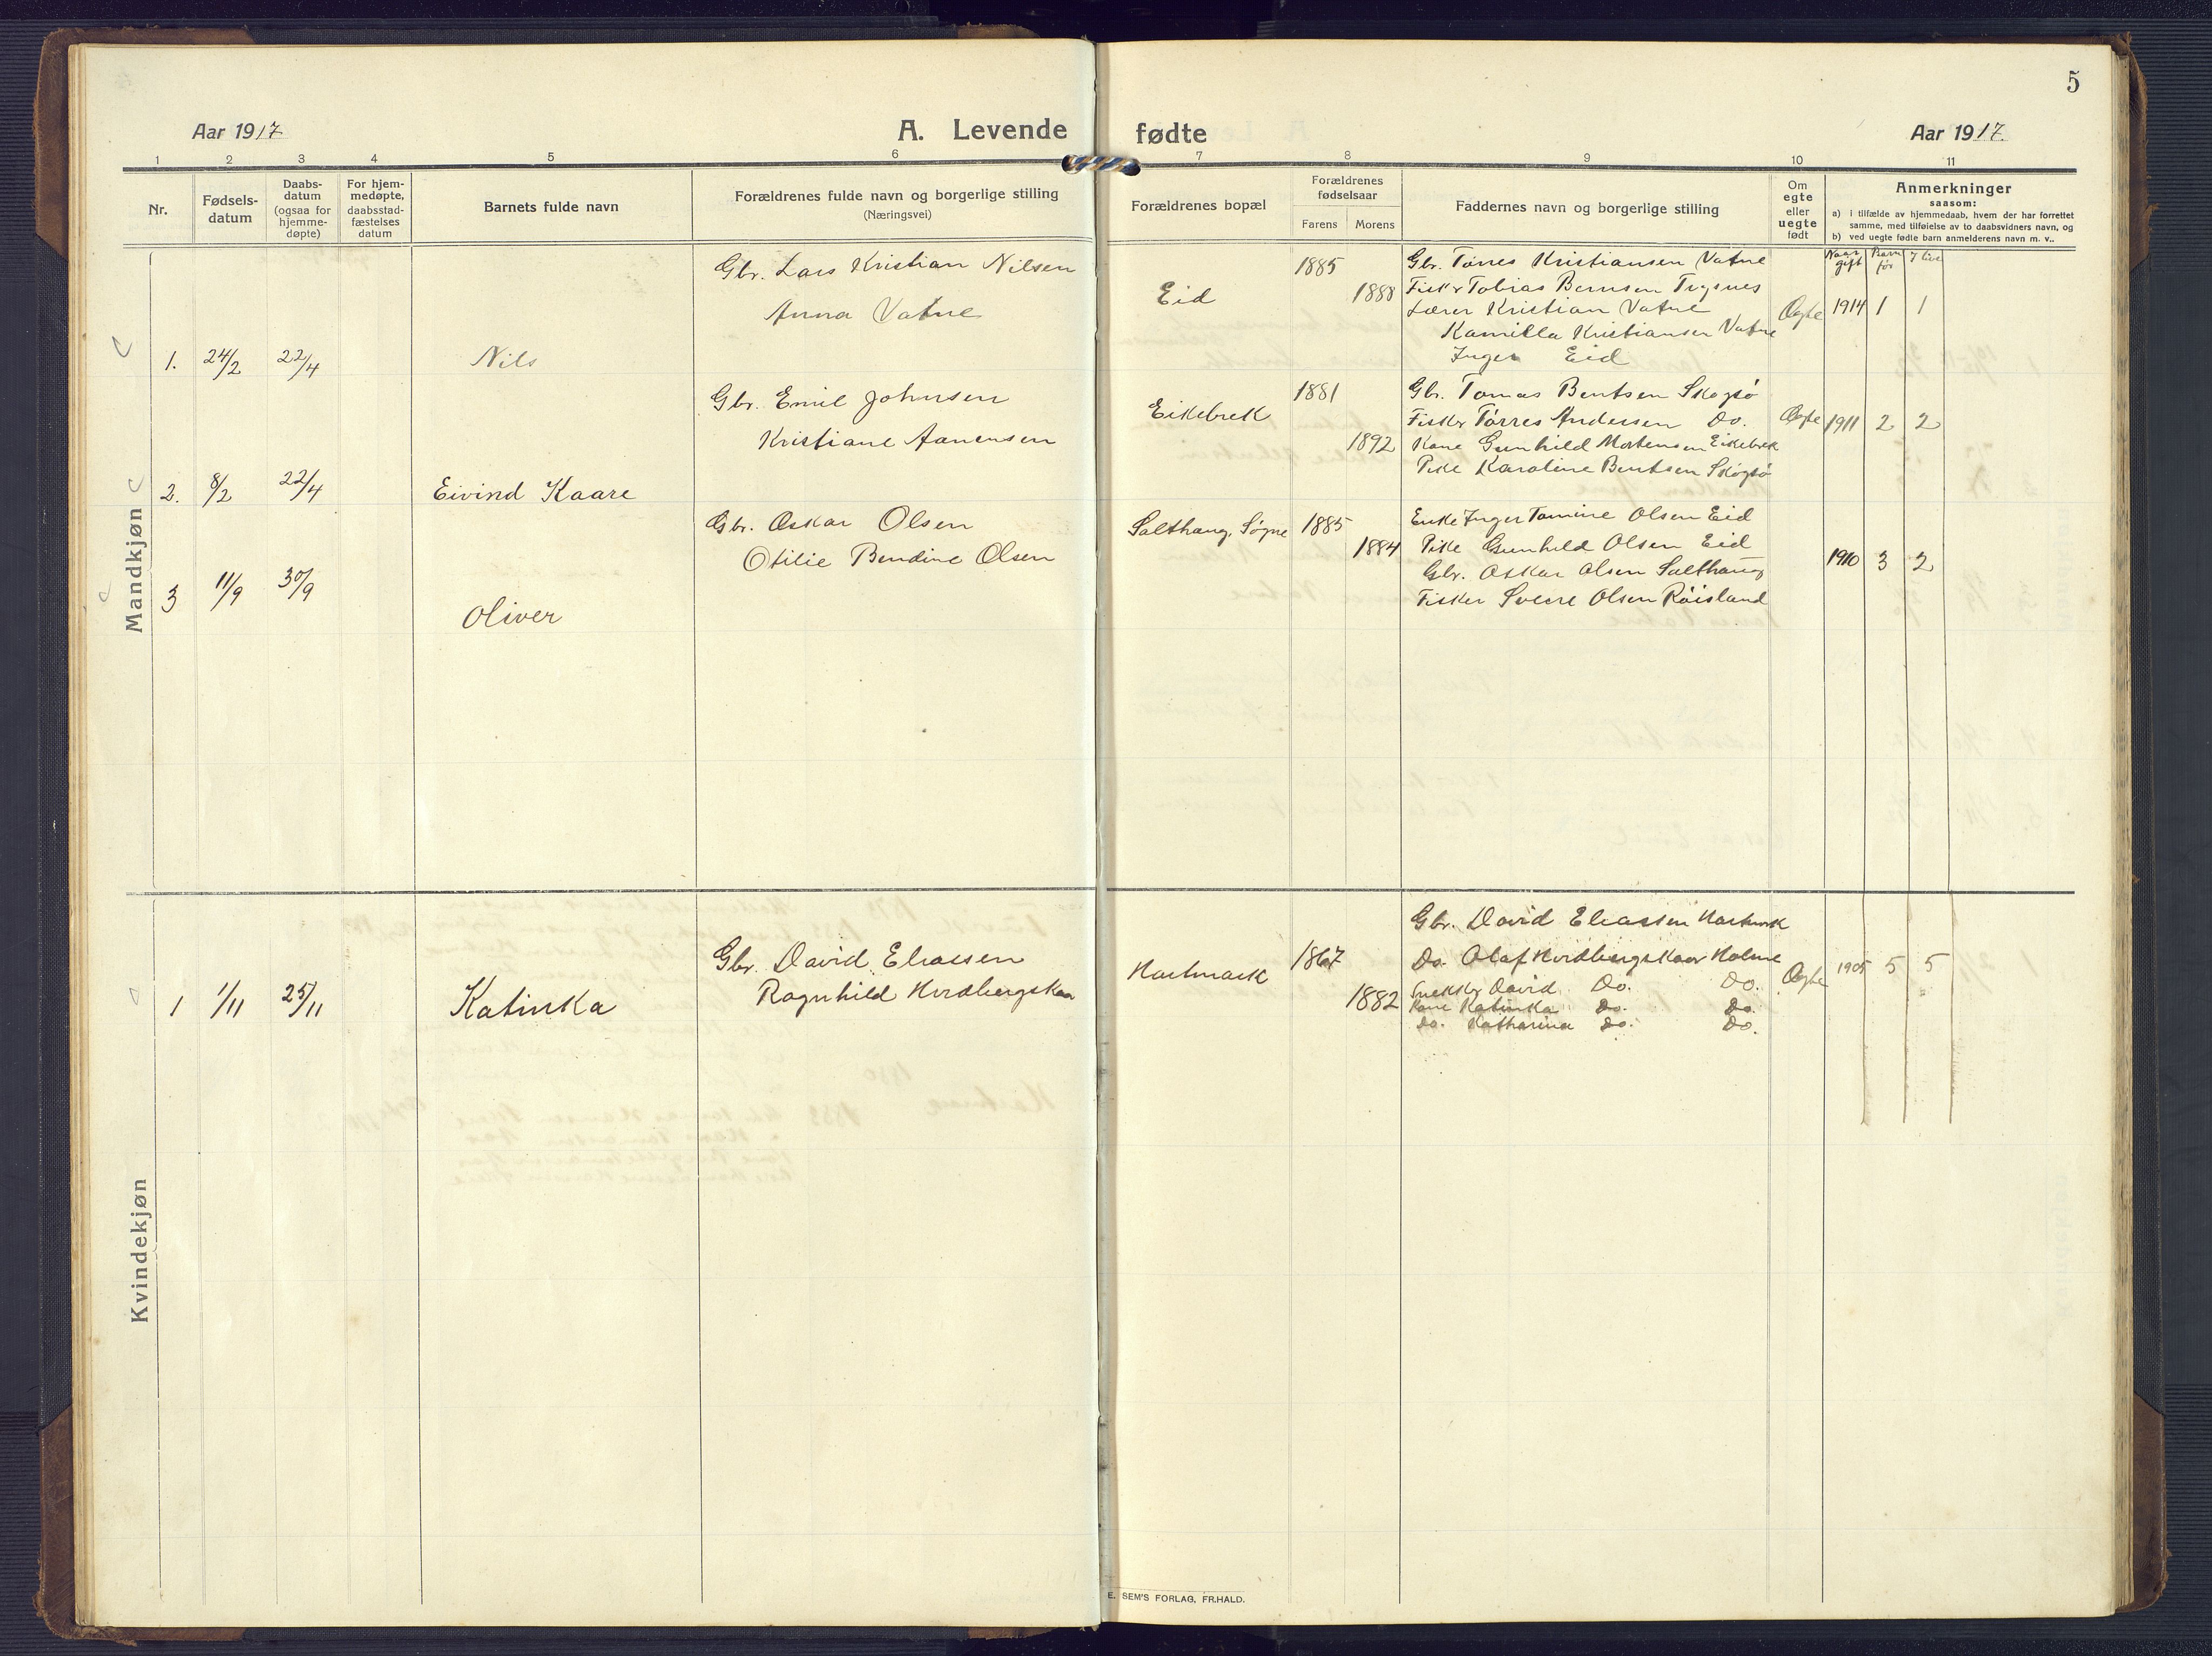 5
Aar 1917
A. Levende fødte
Aar 1917.
1 2 3 4 5 6 7 8 9 10 11
Nr.
Fødsels-
datum
Daabs-
datum
(ogsaa for
hjemme-
døpte)
For hjem-
medøpte,
daabsstad-
fæstelses
datum
Barnets fulde navn
Forældrenes fulde navn og borgerlige stilling
(Næringsvei)
Forældrenes bopæl
Forældrenes
fødselsaar
Farens Morens
Faddernes navn og borgerlige stilling
Om
egte
eller
uegte
født
Anmerkninger
saasom:
a) i tilfælde av hjemmedaab, hvem der har forrettet
samme, med tilføielse av to daabsvidners navn, og
b) ved uegte fødte barn anmelderens navn m. v..
Naar gift
Barn før
I live
Mandkjøn
1. 24/2 22/4 Nils
Gbr. Lars Kristian Nilsen
Anna Vatne
Eid
1885
1888
Gbr. Tørres Kristiansen Vatne
Fisker Tobias Berntsen
Lærer Kristian Vatne
Kamilla Kristiansen Vatne
Inger Eid
Ægte 1914 1 1
2. 8/2 22/4 Eivind Kaare
Gbr. Emil Johnsen
Kristiane Aanensen
Eikebrek
1881
1892
Gbr. Tomas Bentsen Skogsø
Fisker Tørres Andersen Do.
Kone Gunhild Mortensen Eikebrek
Pike Karoline Bentsen Skogsø
Ægte 1911 2 2
3 11/9 30/9 Oliver
Gbr. Oskar Olsen
Otilie Bendine Olsen
Salthaug, Søgne
1885
1884
Enke Inger Tomine Olsen Eid
Pike Gunhild Olsen Eid
Gbr. Oskar Olsen Salthaug
Fisker Sverre Olsen Røisland
1910 3 2
Kvindekjøn
1 1/11 25/11 Katinka
Gbr. David Eliassen
Ragnhild Hvidbergskaar
Hartmark
1867
1882
Gbr. David Eliassen Hartmark
Do. Olaf Hvidbergskaar Holme
Snekker David Do. Do.
Kone Katinka Do. Do.
Do. Katharina Do. Do.
Ægte 1905 5 5
E. SEM'S FORLAG, FR.HALD.